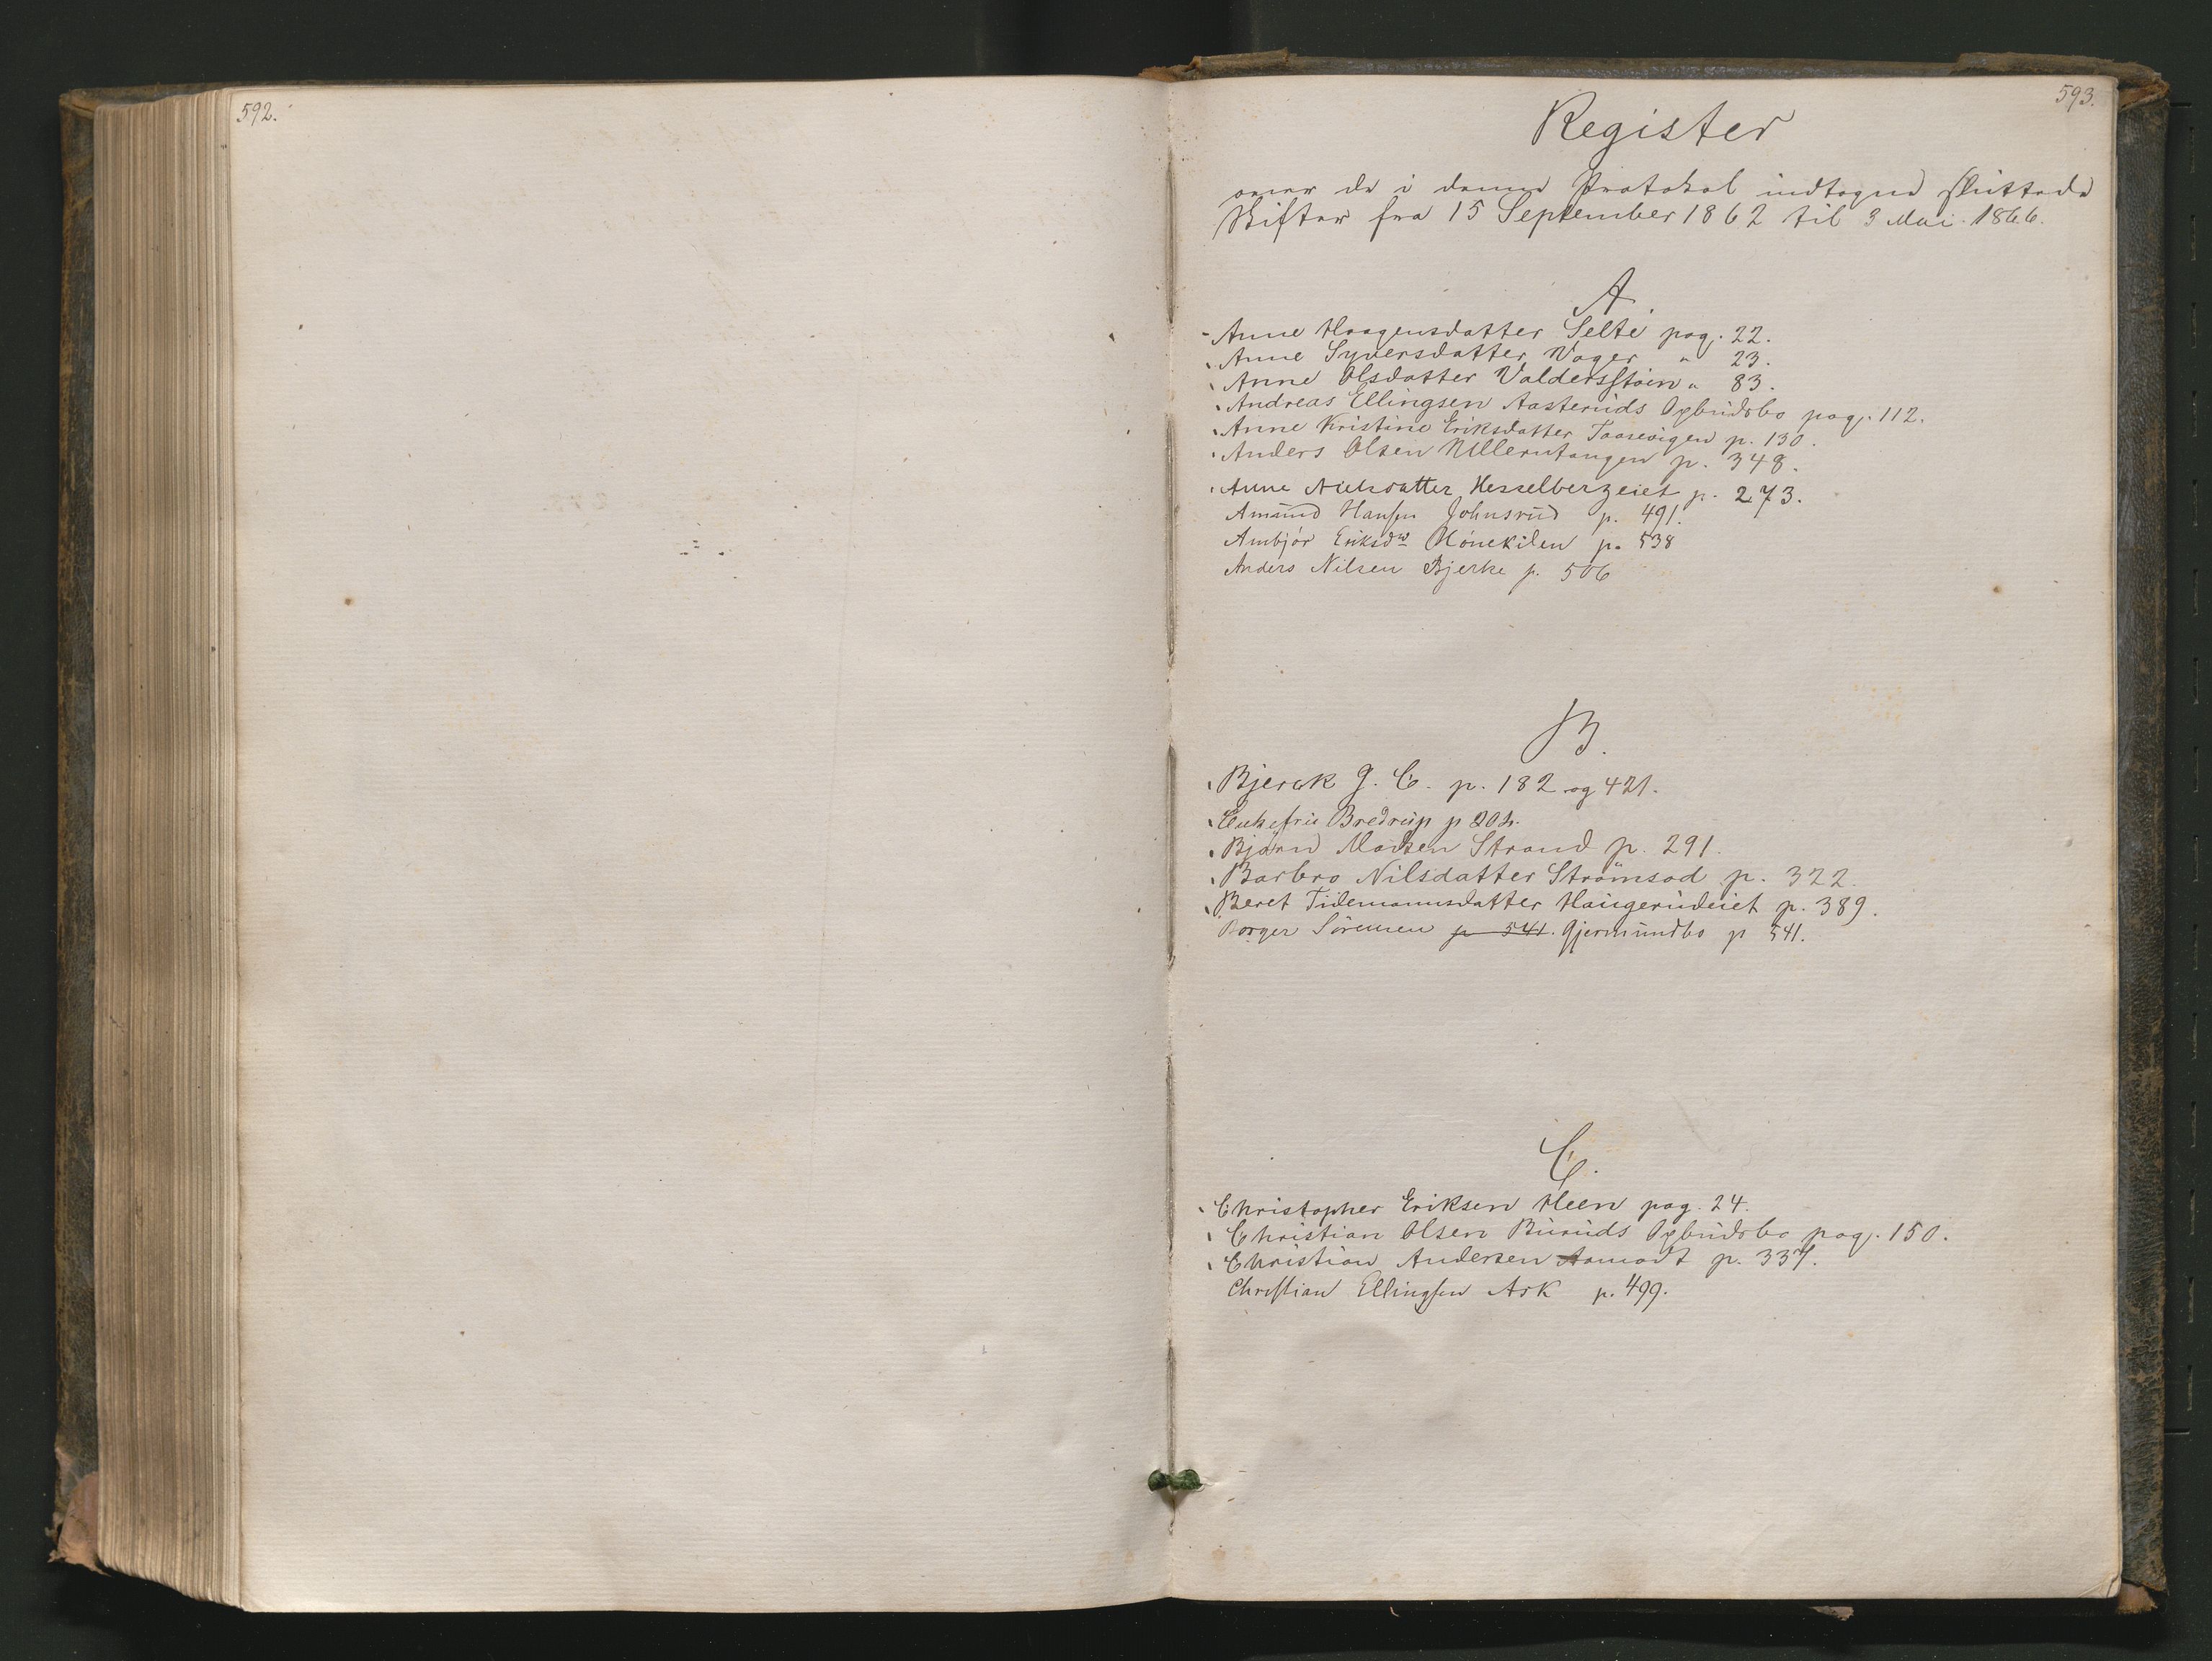 592.
593.
Register
over de i denne Protokol indtagne sluttede
Skifter fra 15 September 1862 til 3 Mai 1866.
A.
Anne Haagensdatter Selte pag. 22.
Anne Syversdatter Vager " 23.
Anne Olsdatter Valdersstøin " 83.
Andreas Ellingsen Aasteruds Opbudsbo pag. 112.
Anne Kristine Eriksdatter Taasevigen p. 130.
Anders Olsen Ullerntangen p. 348.
Anne Nielsdatter Hesselbergeiet p. 273.
Amund Hansen Johnsrud p. 491.
Ambjør Eriksdr Hønekilen p. 538
Anders Nilsen Bjerke p. 506
B.
Bjerck G. C. p. 182 og 421.
Enkefru Bredrup p 204.
Bjørn Madsen Strand p. 291.
Barbro Nilsdatter Strømsod p. 322.
Beret Tidemannsdatter Haugerudeiet p. 389.
Borger Sørensen p 541. Gjermundbo p 541.
C.
Christopher Eriksen Heen pag. 24.
Christian Olsen Buruds Opbudsbo pag. 150.
Christian Andersen Aamodt p. 337.
Christian Ellingsen Ask p. 499.